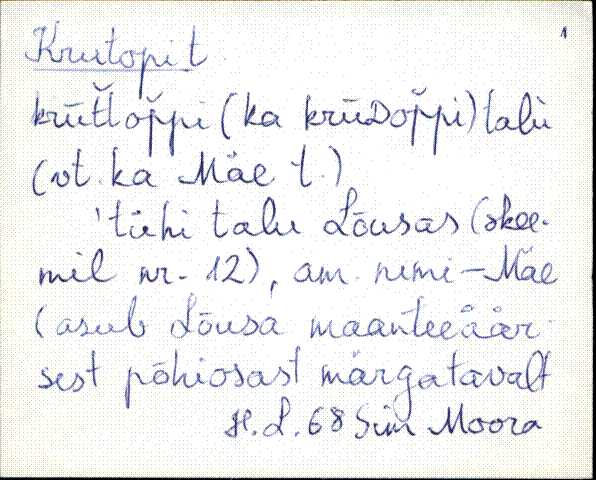 1
Krutopi t.
krūt̆t̆op̆p̆i (ka krūDop̆p̆i) talù
(vt. ka Mäe t.)
'tühi talu Lõusas (skee-
mil nr. 12), am. nimi – Mäe
(asub Lõusa maanteeäär-
sest põhiosast märgatavalt
H.L. 68 Sim Moora